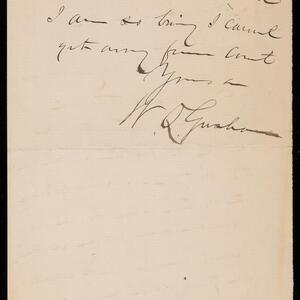 I am so busy I cannot
get away from Court
Yours &
W. Q. Gresham